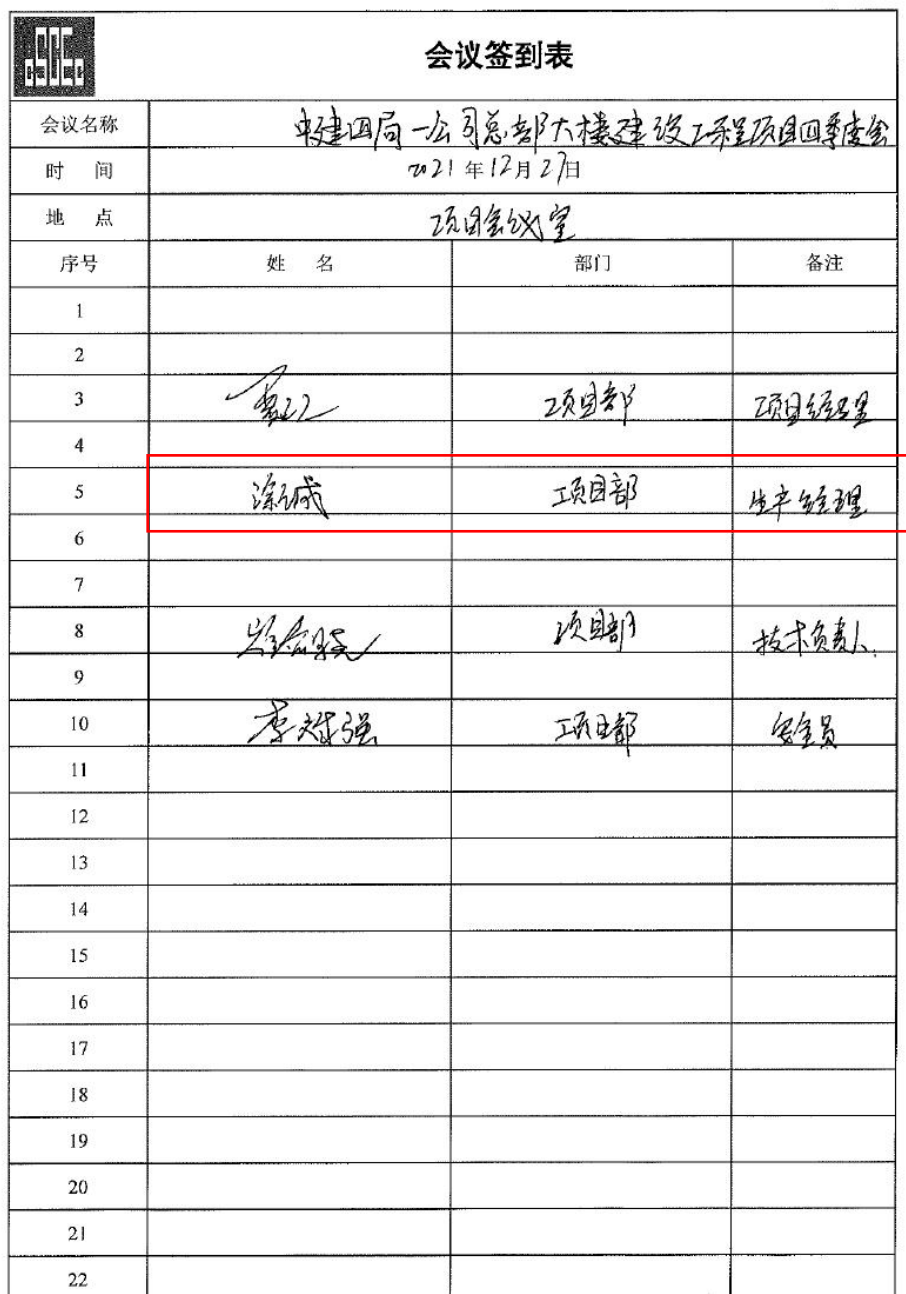 CSCEC
会议签到表
会议名称 中建四局一公司总部大楼建设工程项目四季度会
时 间 2021年12月27日
地 点 项目会议室
序号 姓 名 部门 备注
1
2
3 项目部 项目经理
4
5 涂诚 项目部 生产经理
6
7
8 项目部 技术负责人
9
10 李斌强 项目部 安全员
11
12
13
14
15
16
17
18
19
20
21
22